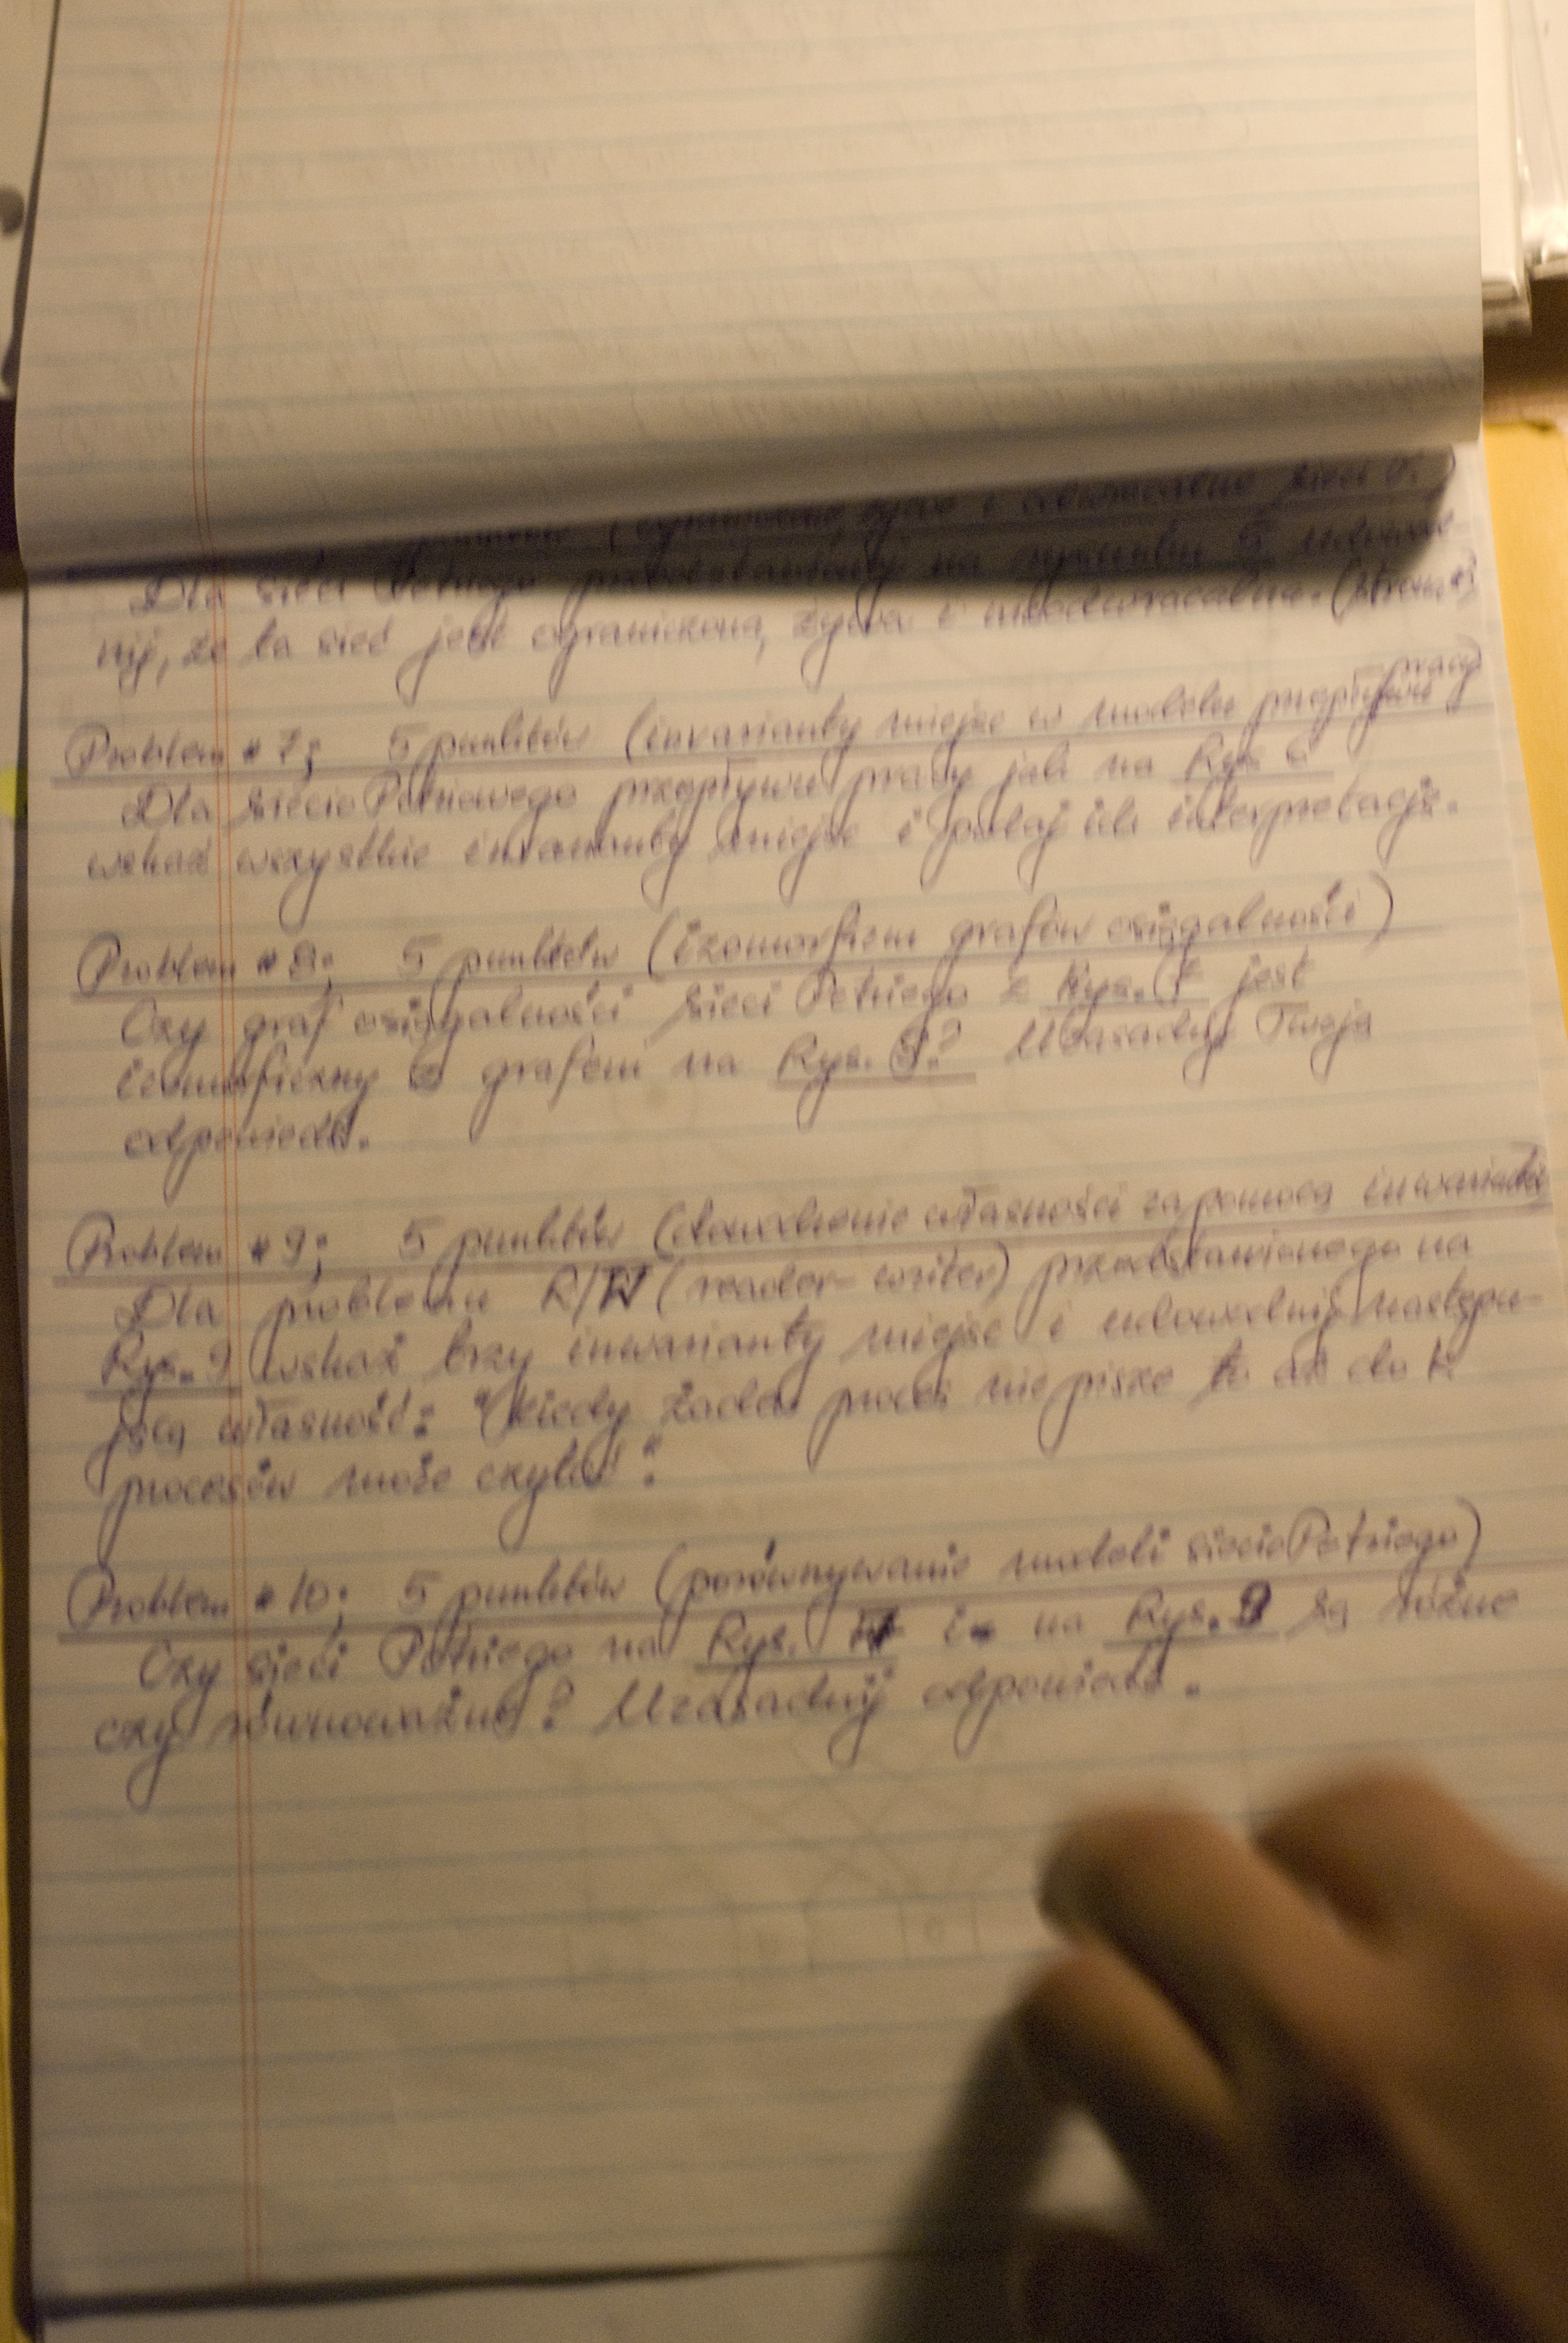 (ograniczone, żywe i odwracalne sieci P.)
Dla sieci Petriego przedstawionej na rysunku 5 udowod-
nij, że ta sieć jest ograniczona, żywa i nieodwracalna.
pracy)
Problem #7: 5 punktów (inwarianty miejsc w modelu przepływu
Dla siecioPetriowego przepływu pracy jak na Rys. 6
wskaż wszystkie inwarianty miejsc i podaj ich interpretację.
Problem #8: 5 punktów (izomorfizm grafów osiągalności)
Czy graf osiągalności sieci Petriego z Rys. 7 jest
izomorficzny z grafem na Rys. 8? Uzasadnij Twoją
odpowiedź.
Problem #9: 5 punktów (dowodzenie własności za pomocą inwariantów
Dla problemu R/W (reader-writer) przedstawionego na
Rys. 9 wskaż trzy inwarianty miejsc i udowodnij następu-
jącą własność: "Kiedy żaden proces nie pisze to aż do k
procesów może czytać".
Problem #10: 5 punktów (porównywanie modeli siecioPetriego)
Czy sieci Petriego na Rys. i na Rys. 9 są różne
czy równoważne? Uzasadnij odpowiedź.